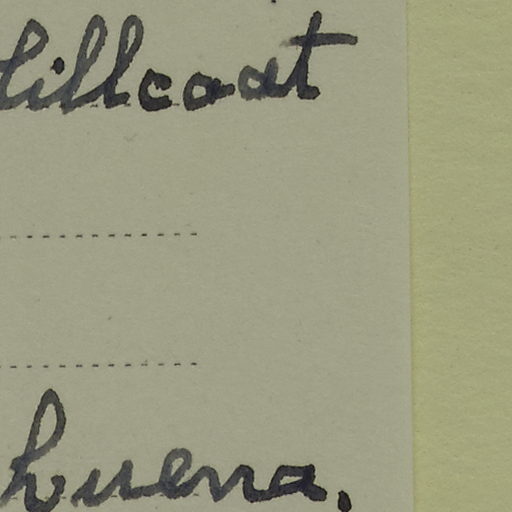 illcoat
buena.